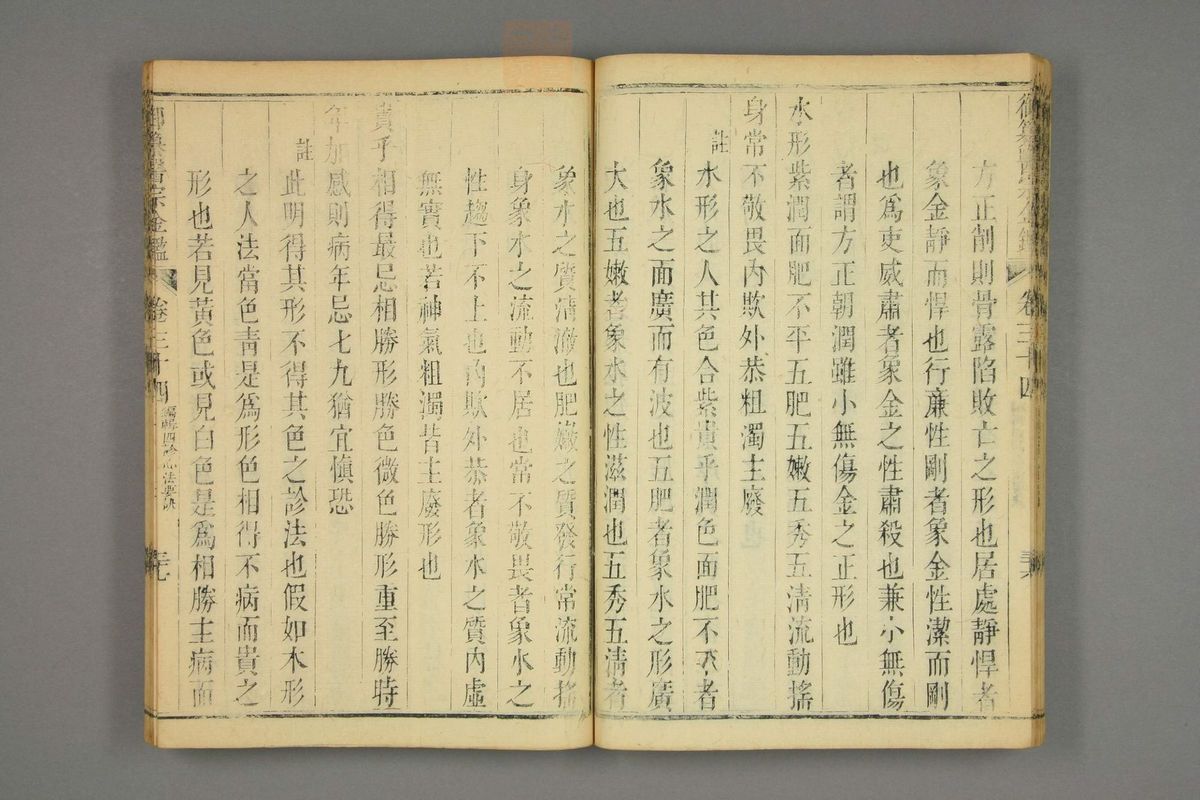 御纂醫宗金鑑 卷三十四 三六
方正削則骨露陷敗亡之形也居處靜悍者
象金靜而悍也行亷性剛者象金性潔而剛
也爲吏威肅者象金之性肅殺也兼小無傷
者謂方正朝潤雖小無傷金之正形也
水形紫潤面肥不平五肥五嫩五秀五清流動搖
身常不敬畏內欺外恭粗濁主廢
註
水形之人其色合紫貴乎潤色面肥不平者
象水之面廣而有波也五肥者象水之形廣
大也五嫩者象水之性滋潤也五秀五清者
象水之質清澈也肥嫩之質發行常流動搖
身象水之流動不居也常不敬畏者象水之
性趨下不上也內欺外恭者象水之質內虛
無實也若神氣粗濁皆主廢形也
貴乎相得最忌相勝形勝色微色勝形重至勝時
年加感則病年忌七九猶宜慎恐
註
此明得其形不得其色之診法也假如木形
之人法當色靑是爲形色相得不病而貴之
形也若見黃色或見白色是爲相勝主病而
御纂醫宗金鑑 卷三十四 編輯四診心法要訣 三七